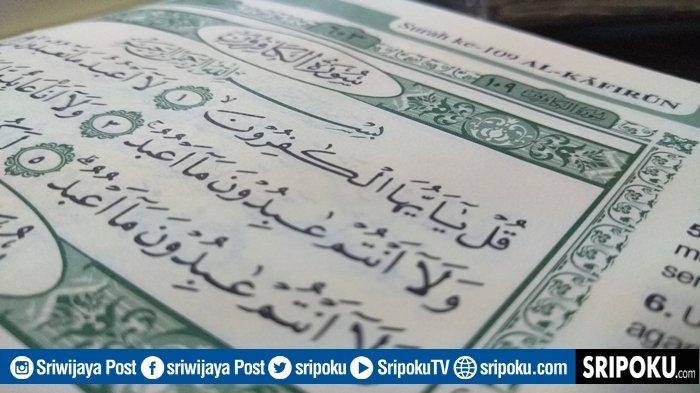 Surah ke-109 AL-KĀFIRŪN
٦٠٣
١٠٩
سُوْرَةُ الْكَافِرُوْنَ
بِسْمِ اللّٰهِ الرَّحْمٰنِ الرَّحِيْمِ
قُلْ يٰٓاَيُّهَا الْكٰفِرُوْنَ ۙ ١ لَآ اَعْبُدُ مَا
وَلَآ اَنْتُمْ عٰبِدُوْنَ مَآ اَعْبُدُ ۚ ٣ وَلَآ اَنَا۠ عَابِدٌ
وَلَآ اَنْتُمْ عٰبِدُوْنَ مَآ اَعْبُدُ ۗ ٥
5.
6.
agar
Sriwijaya Post
sriwijaya Post
sripoku
SripokuTV
sripoku.com
SRIPOKU.com